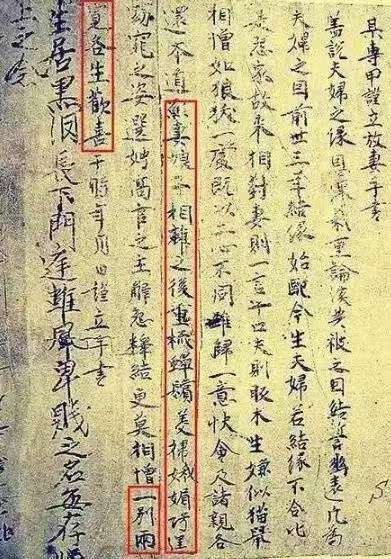 某專甲謹立放妻手書
蓋說夫婦之緣恩深義重論談共被之因結誓幽遠凡為
夫婦之因前世三年結緣始配今生夫婦若結緣不合比
是怨家故來相對妻則一言十口夫則反木生嫌似猫鼠
相憎如狼狄一處既以二心不同難歸一意快會及諸親各
還本道 妻娘子相離之後重梳蟬鬢美掃娥媚巧逞
窈窕之姿選娉高官之主解怨釋結更莫相憎一別兩
寬各生歡喜于時年月日謹立手書
生居黑 長下門庭雖 卑賤之名 存
上之